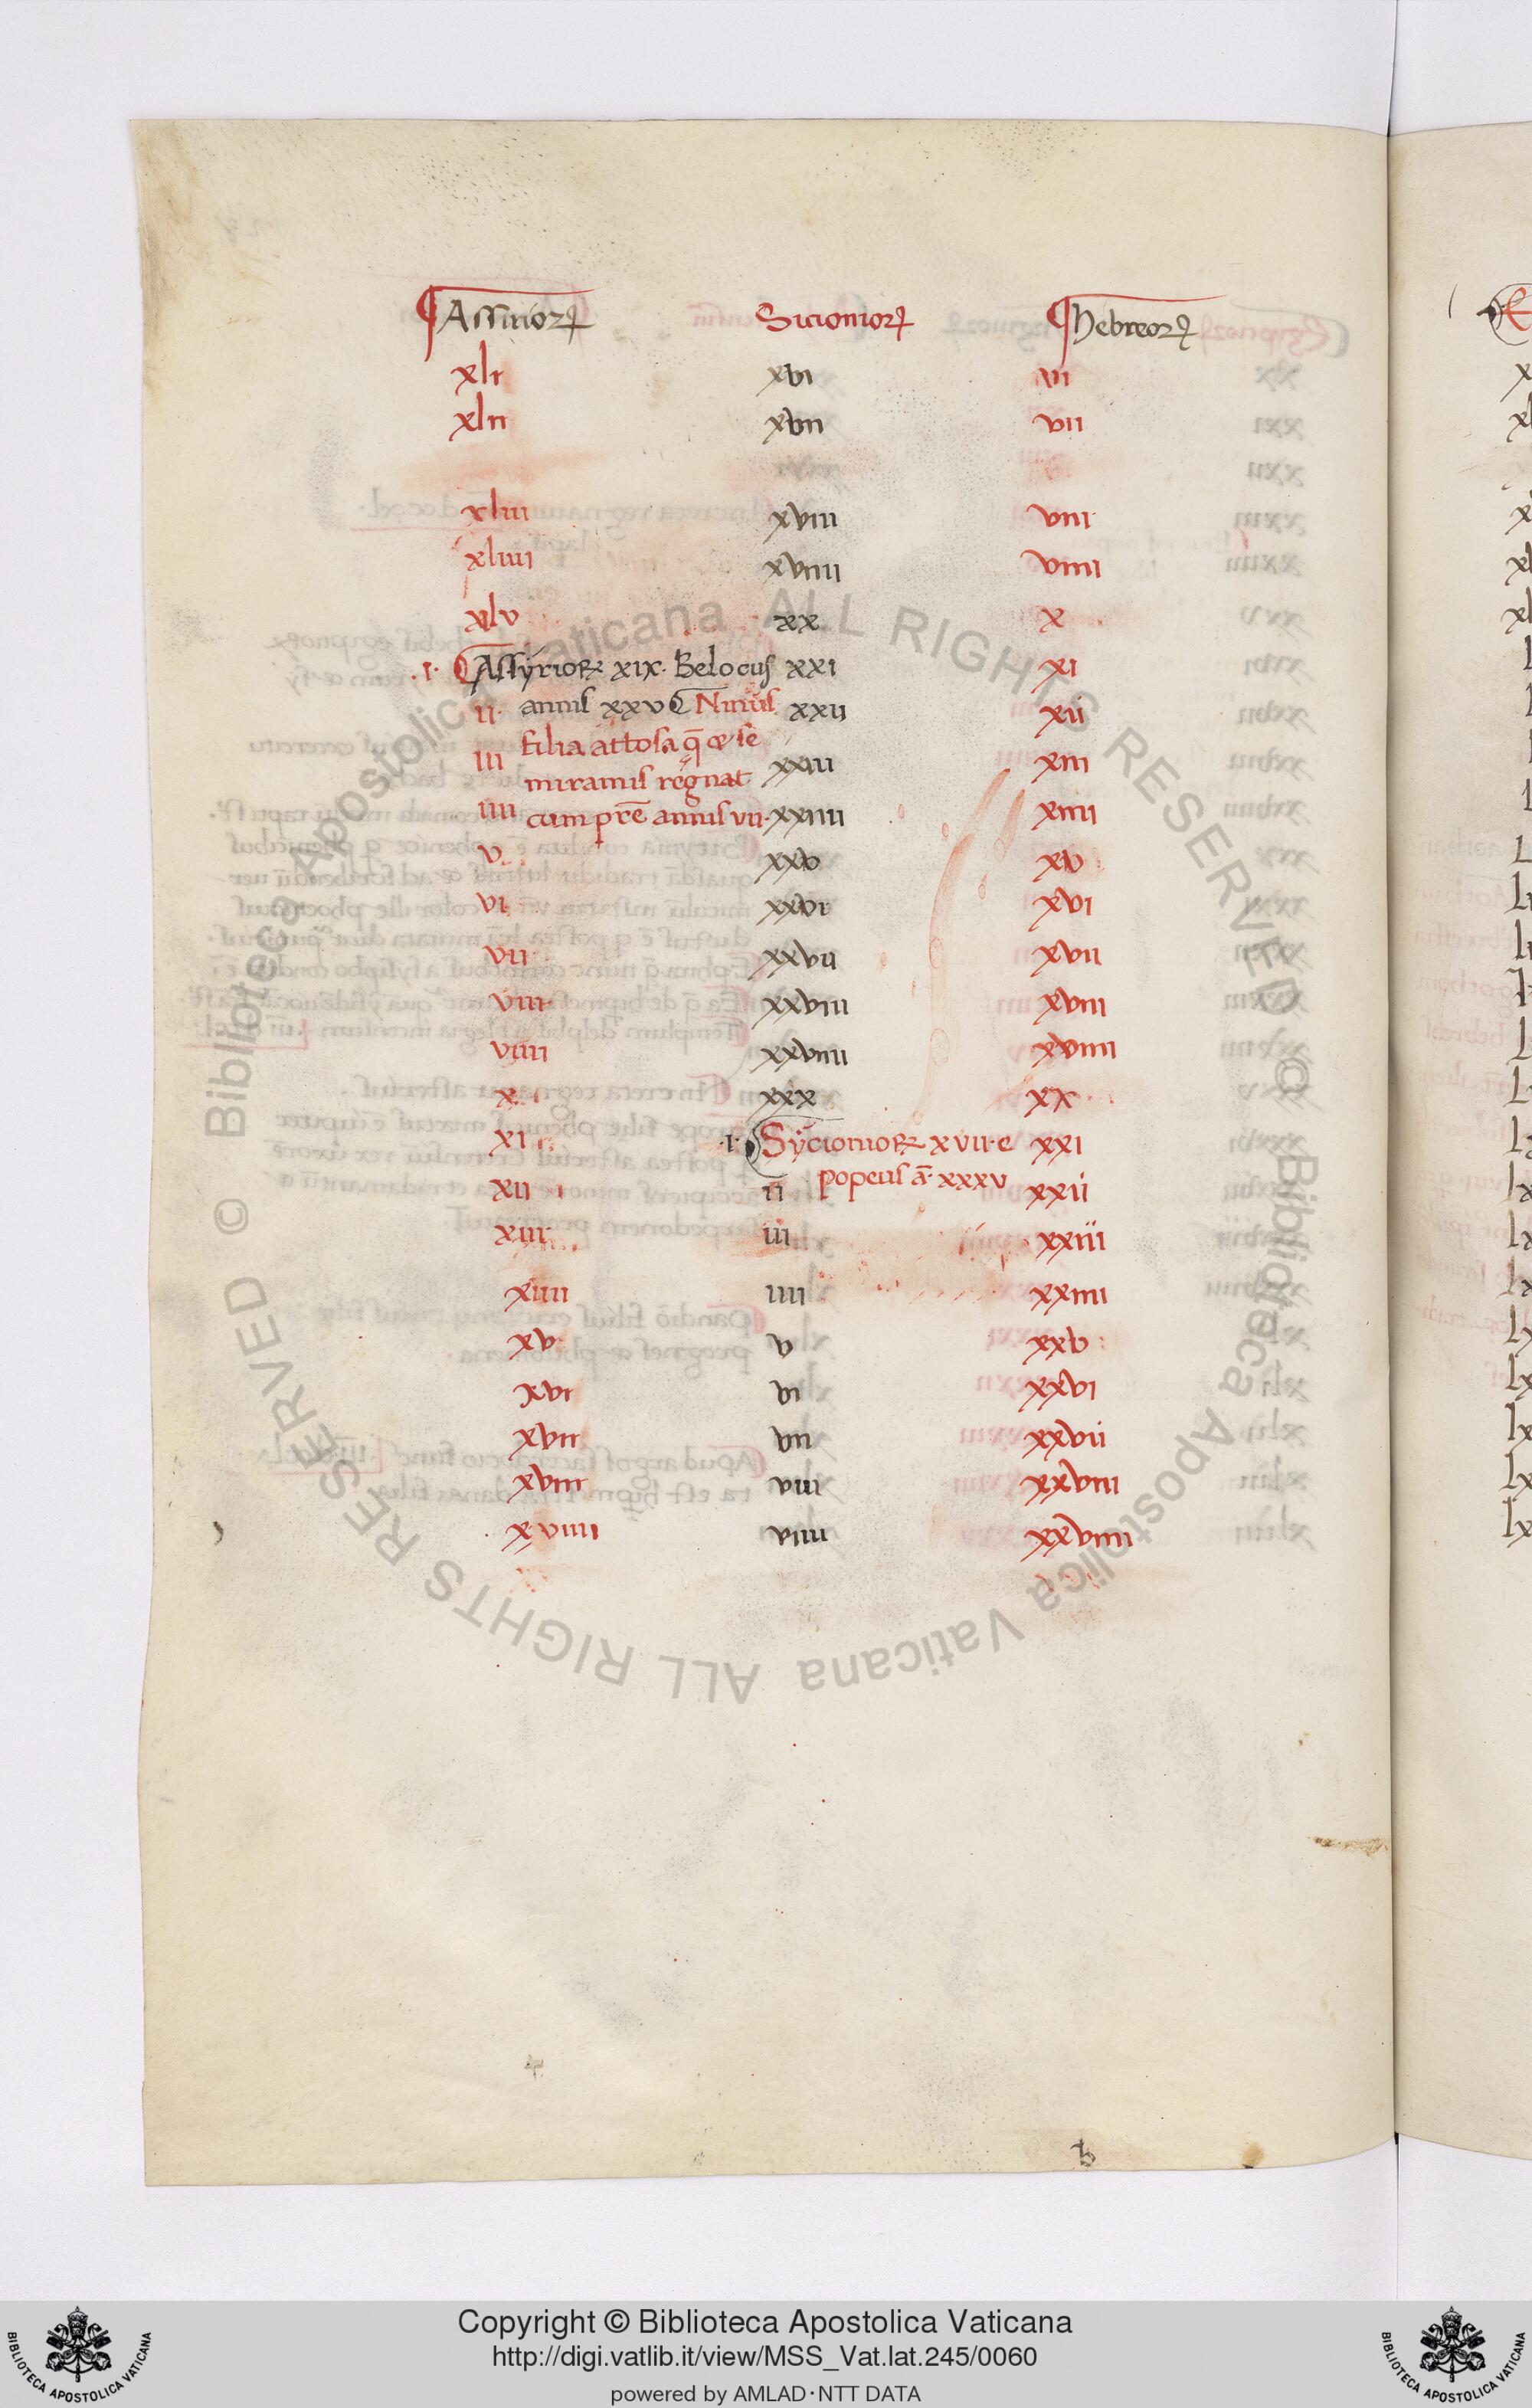 Assirioꝝ Sicionioꝝ hebreoꝝ
xli xvi vi
xlii xvii vii
xliii xviii viii
xliiii xviiii viiii
xlv xx x
.I. Assÿrioꝝ xıx. Belocus xxi xi
ii. annis xxv Ninus xxii xii
filia attosa q̄ & se
iii miramis regnat xxiii xiii
iiii cum pr̄e annis vii. xxiiii xiiii
v xxv xv
vi xxvi xvi
vii xxvii xvii
viii xxviii xviii
viiii xxviiii xviiii
x xxx xx
xi .I. Sÿcionioꝝ xvii. e xxi
popeus ā. xxxv
xii ii xxii
xiii iii xxiii
xiiii iiii xxiiii
xv v xxv
xvi vi xxvi
xvii vii xxvii
xviii viii xxviii
xviiii viiii xxviiii
b
© Biblioteca Apostolica Vaticana ALL RIGHTS RESERVED © Biblioteca Apostolica Vaticana ALL RIGHTS RESERVED
Copyright © Biblioteca Apostolica Vaticana
http://digi.vatlib.it/view/MSS_Vat.lat.245/0060
powered by AMLAD·NTT DATA
BIBLIOTECA APOSTOLICA VATICANA
BIBLIOTECA APOSTOLICA VATICANA